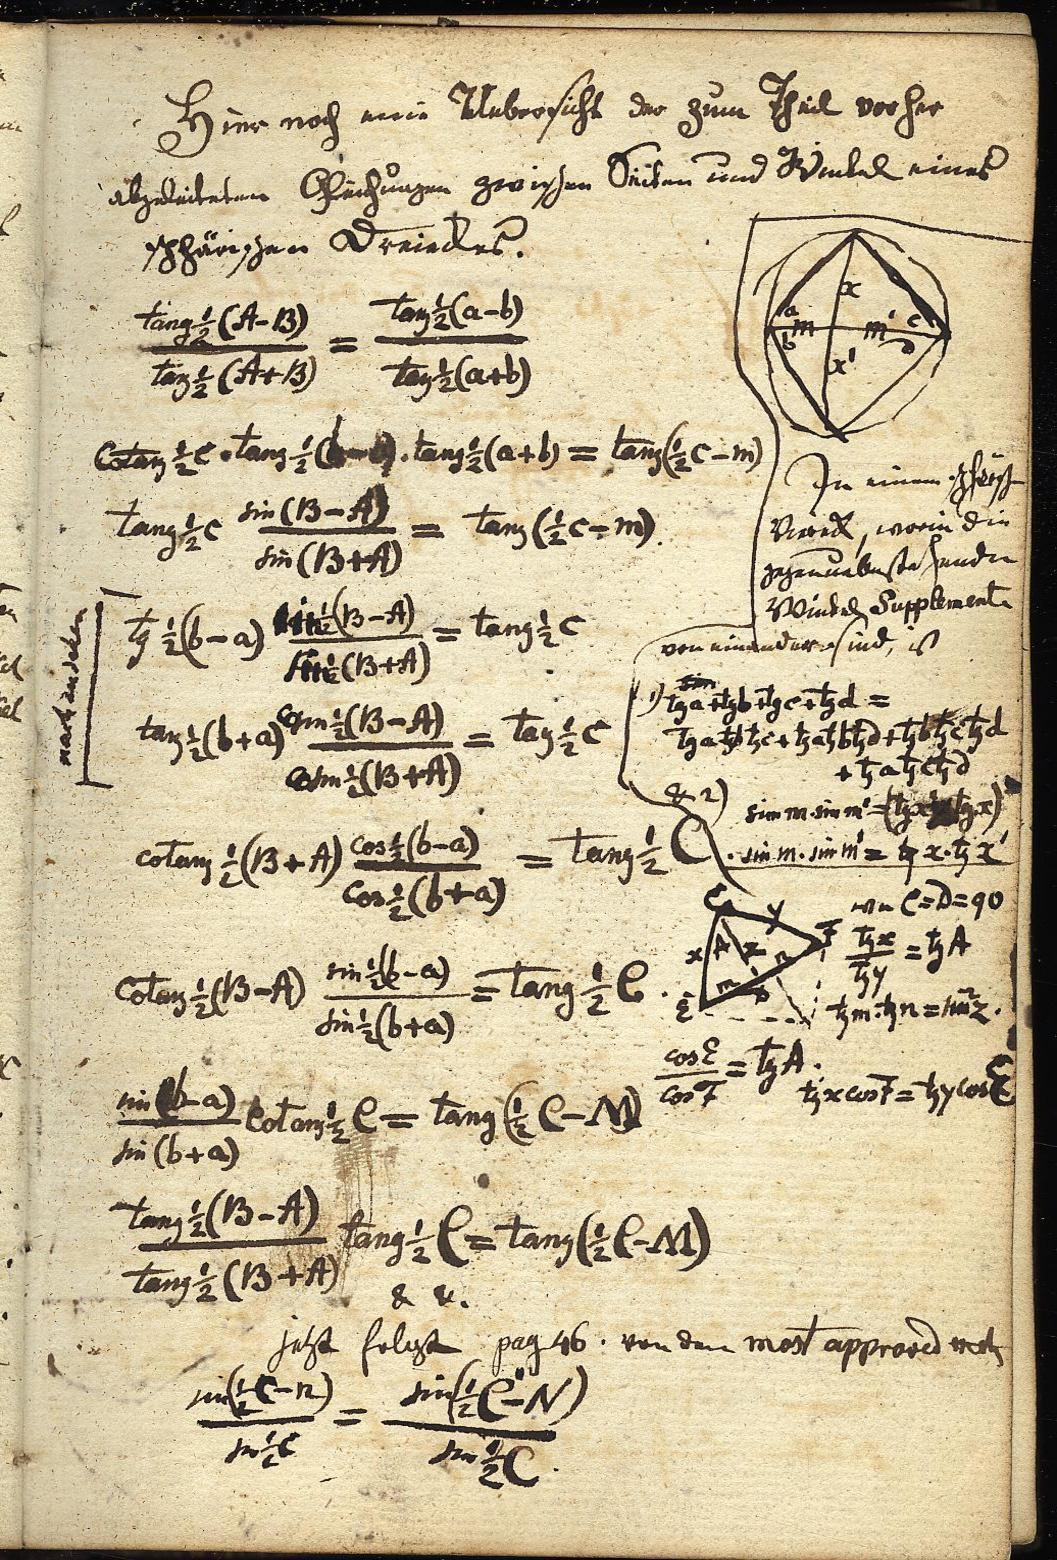 Hier noch eine Uebersicht der zum Theil vorher
abgeleiteten Gleichungen zwischen Seiten und Winkel eines
sphärischen Dreiecks.
tang ½(A-B) / tang ½(A+B) = tang ½(a-b) / tang ½(a+b)
Cotang ½c . tang ½( ) . tang ½(a+b) = tang(½c-m)
tang ½c sin(B-A) / sin(B+A) = tang(½c-m).
tg ½(b-a) sin ½(B-A) / sin ½(B+A) = tang ½c
tang ½(b+a) cos ½(B-A) / cos ½(B+A) = tang ½c
cotang ½(B+A) cos ½(b-a) / cos ½(b+a) = tang ½C
Cotang ½(B-A) sin ½(b-a) / sin ½(b+a) = tang ½C.
sin(b-a) / sin(b+a) Cotang ½C = tang(½C-M)
tang ½(B-A) / tang ½(B+A) tang ½C = tang(½C-M)
& &.
jetzt folgt pag 46. von den most approved
sin(½c-n) / sin ½c = sin(½C-N) / sin ½C.
x
a
b
m
m'
c
d
x'
In einem sphärisch
Viereck, worin die
gegenueberstehenden
Winkel Supplemente
von einander sind, ist
1) tg a + tg b + tg c + tg d =
tg a tg b tg c + tg a tg b tg d + tg b tg c tg d
+ tg a tg c tg d
& 2) sin m . sin m' = (tg x' tg x)
. sin m . sin m' = tg x . tg x'
C
y
F
x
A
z
n
m
D
E
C=D=90
tg x / tg y = tg A
tg m . tg n = sin² z.
cos E / cos F = tg A.
tg x cos F = tg y cos E